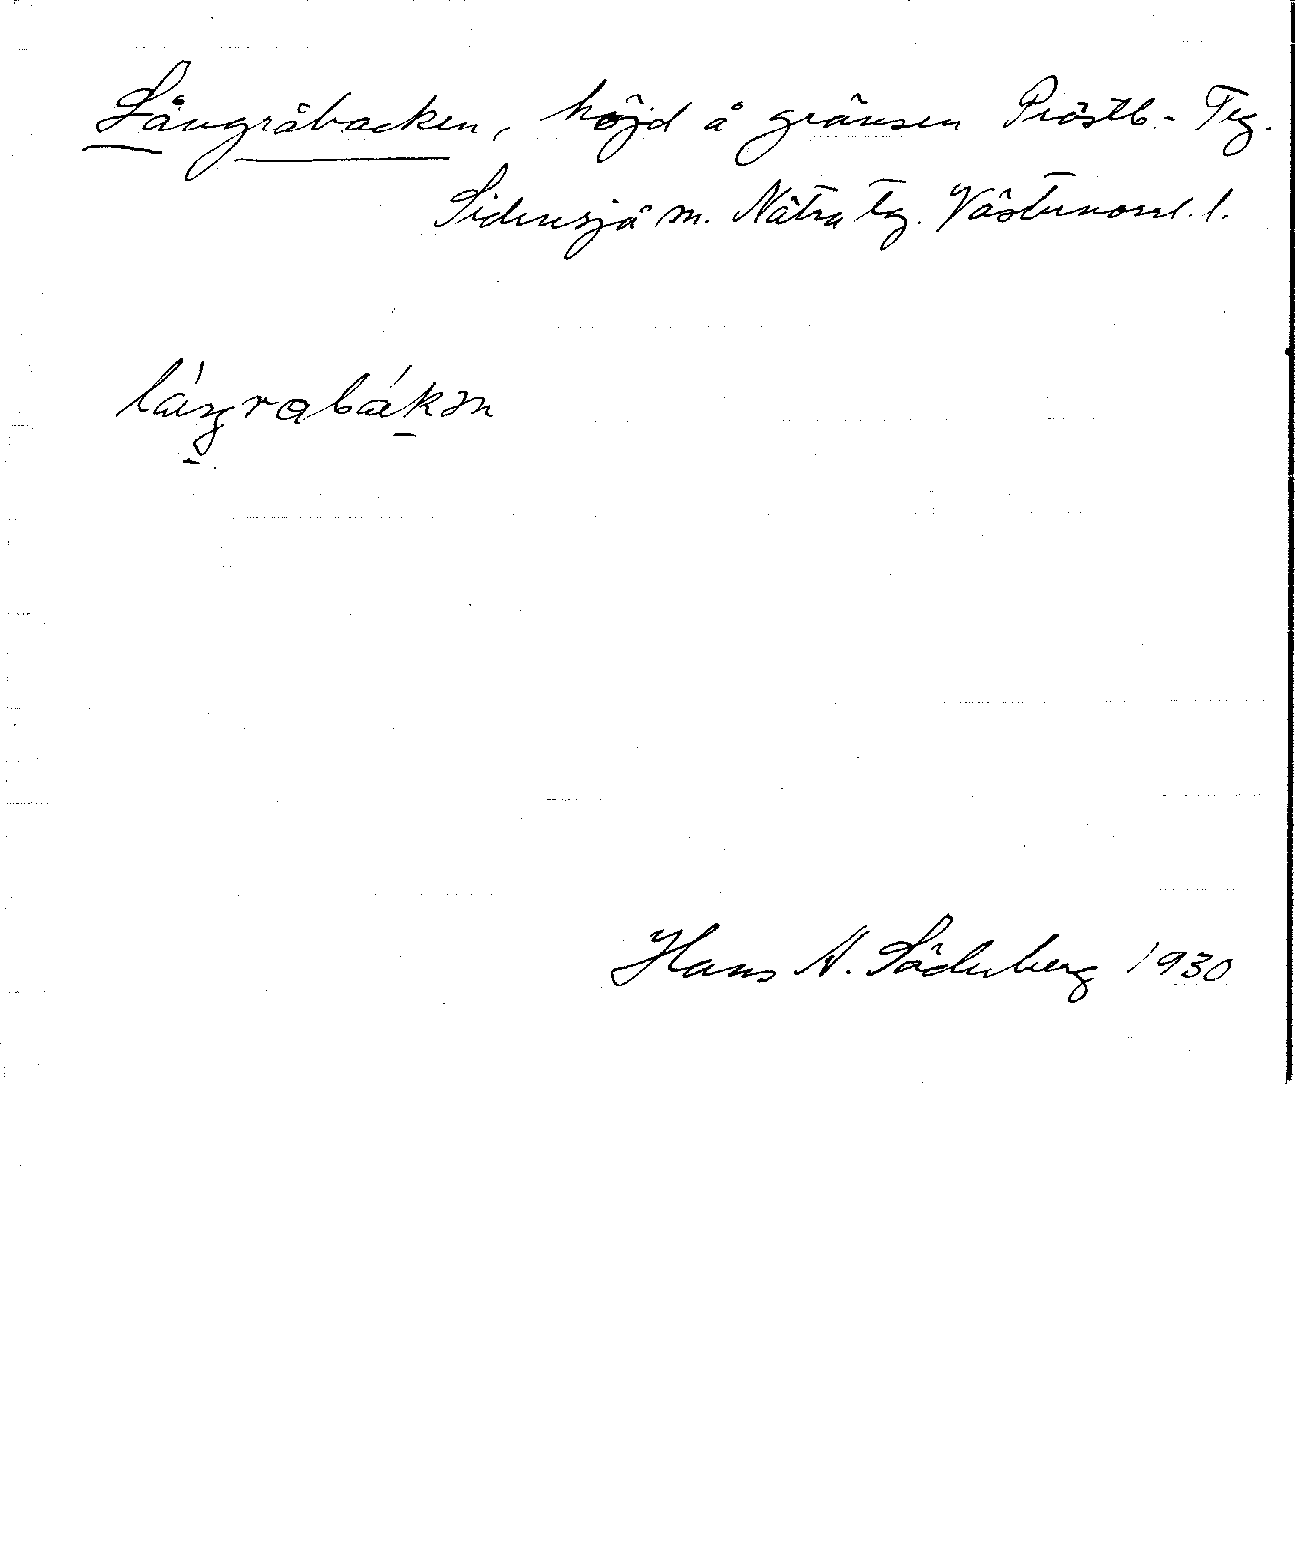 Långråbacken, höjd å gränsen Pröstb.- Teg.
Sidensjö sn. Nätra tg. Västernorrl. l.
láŋrabákən
Hans A. Söderberg 1930